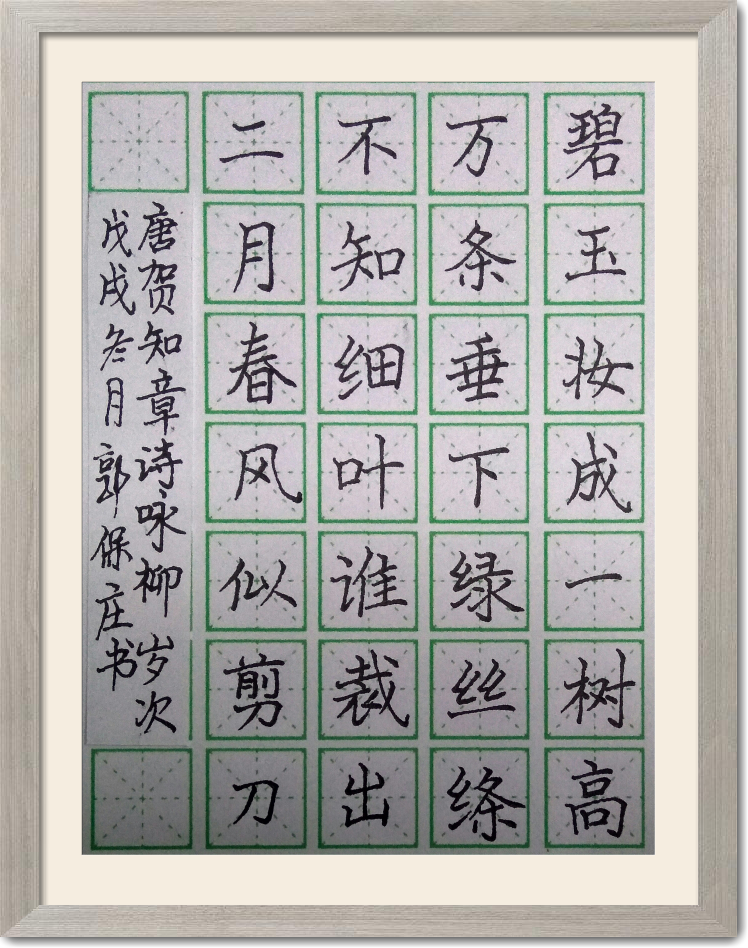 碧玉妆成一树高
万条垂下绿丝绦
不知细叶谁裁出
二月春风似剪刀
唐贺知章诗咏柳 岁次
戊戌冬月郭保庄书